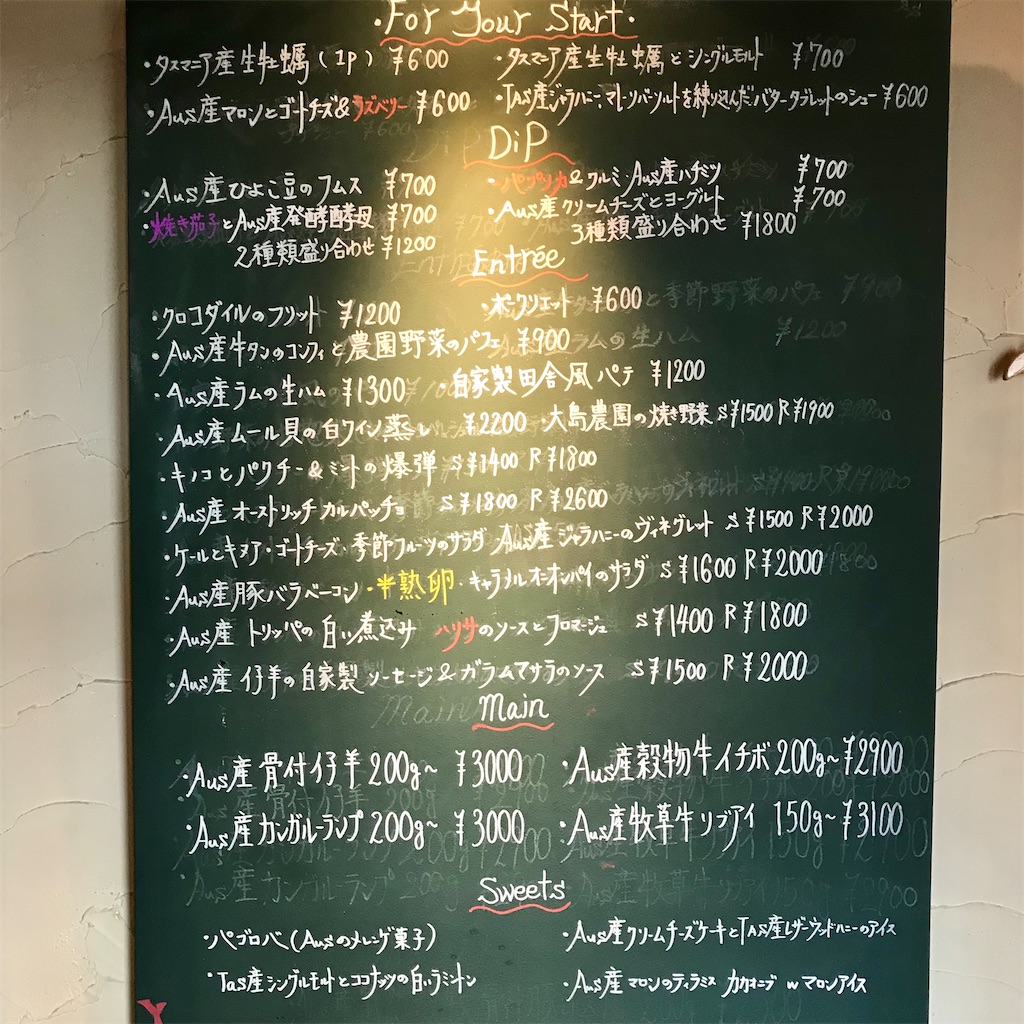 ・For Your Start・
・タスマニア産生牡蠣（1P）￥600 ・タスマニア産生牡蠣とシングルモルト ￥700
・Aus産マロンとゴートチーズ&ラズベリー ￥600 ・TAS産ジャラハニー、マレーリバーソルトを練り込んだバタータブレットのシュー ￥600
DiP
・Aus産ひよこ豆のフムス ￥700 ・パプリカ&クルミ Aus産ハチミツ ￥700
・焼き茄子とAus産発酵酵母 ￥700 ・Aus産クリームチーズとヨーグルト ￥700
2種類盛り合わせ ￥1200 3種類盛り合わせ ￥1800
Entrée
・クロコダイルのフリット ￥1200 ・ポークリエット ￥600
・Aus産牛タンのコンフィと農園野菜のパフェ ￥900
・Aus産ラムの生ハム ￥1300 ・自家製田舎風パテ ￥1200
・Aus産ムール貝の白ワイン蒸し ￥2200 ・大島農園の焼き野菜 S￥1500 R￥1900
・キノコとパクチー&ミントの爆弾 S￥1400 R￥1800
・Aus産オーストリッチカルパッチョ S￥1800 R￥2600
・ケールとキヌア・ゴートチーズ・季節フルーツのサラダ Aus産ジャラハニーのヴィネグレット S￥1500 R￥2000
・Aus産豚バラベーコン・半熟卵・キャラメルオニオンパイのサラダ S￥1600 R￥2000
・Aus産 トリッパの白い煮込み ハリサのソースとフロマージュ S￥1400 R￥1800
・Aus産 仔羊の自家製ソーセージ&ガラムマサラのソース S￥1500 R￥2000
Main
・Aus産骨付仔羊 200g~ ￥3000 ・Aus産穀物牛イチボ 200g~ ￥2900
・Aus産カンガルーランプ 200g~ ￥3000 ・Aus産牧草牛リブアイ 150g~ ￥3100
Sweets
・パブロバ（Ausのメレンゲ菓子） ・Aus産クリームチーズケーキとTAS産レザーウッドハニーのアイス
・Tas産シングルモルトとココナッツの白いラミントン ・Aus産マロンのティラミス カカオニブ w マロンアイス